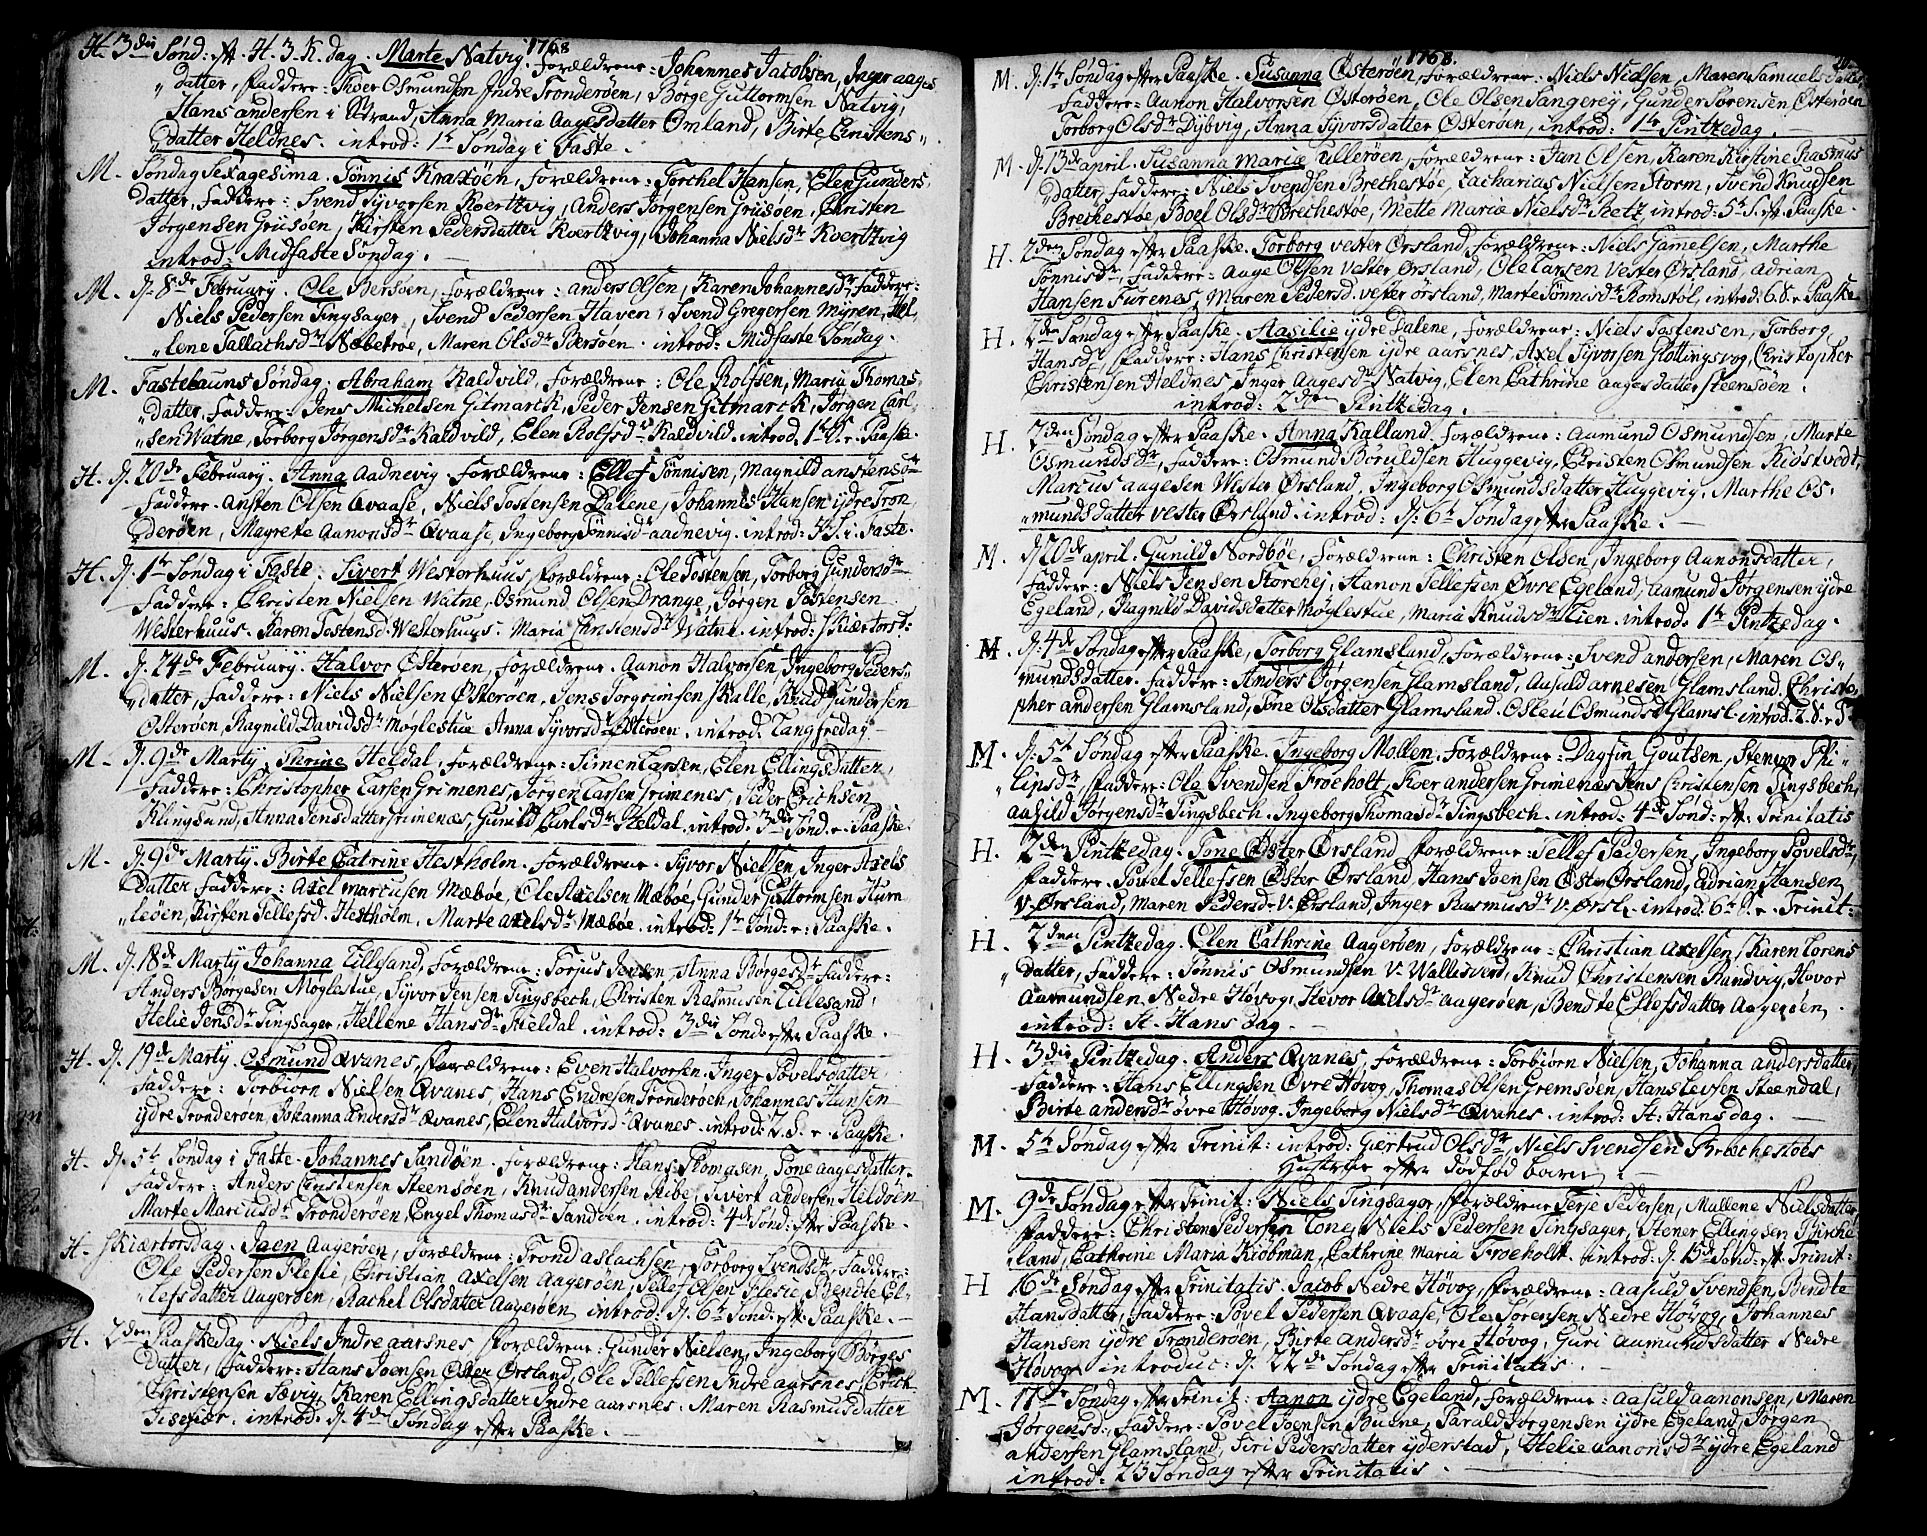 1768
H. 3die Sønd: eft. H. 3. K. dag. Marte Natvig. Forældrene: Johannes Jacobsen, Inger aages
datter, Faddere: Thoer Osmundsen Indre Tronderøen, Børge Guttormsen Natvig,
Hans andersen i Strand, Anna Maria Aagesdatter Omland, Birte Christens
datter Heldnes. introd: 1te Søndag i Faste.
M. Søndag Sexagesima. Tønnis Kraxøen, Forældrene: Torchel Hansen, Elen Gunders
Datter, Faddere: Svend Syvorsen Koertvig, Anders Jørgensen Griisøen, Christen
Jørgensen Griisøen, Kirsten Pedersdatter Koertvig, Johanna Nielsdr Koertvig
introd: Midfaste Søndag.
M. d. 8de February. Ole Bersøen, Forældrene: anders Olsen, Karen Johannesdr, Faddere:
Niels Pedersen Tingsager, Svend Pedersen Haven, Svend Gregersen Myren, Hel
lene Tallachsdr Næbetroe, Maren Olsdr Bersøen. introd: Midfaste Søndag.
M. Fastelauns Søndag. Abraham Kaldvild, Forældrene: Ole Rolfsen, Maria Thomas
datter, Faddere: Jens Michelsen Gitmarck, Peder Jensen Gitmarck, Jørgen Carl
sen Watne, Torborg Jørgensdr Kaldvild, Elen Rolfsdr Kaldvild. introd. 1te S. e. Paaske.
H. d. 20de February. Anna Aadnevig, Forældrene: Ellef Tønnisen, Magnild anstensdr
Faddere. Ansten Olsen Qvaase, Niels Tostensen Dalene, Johannes Hansen ydre Tron
derøen, Magrete Aanonsdr Qvaase, Ingeborg Tønnisdr aadnevig. introd: 4. S. i. Faste.
H. d. 1te Søndag i Faste. Sivert Westerhuus, Forældrene: Ole Tostensen, Torborg Gundersdr
Faddere: Christen Nielsen Watne, Osmund Olsen Drange, Jørgen Tostensen
Westerhuus. Karen Tostensd. Westerhuus. Maria Christensdr Watne. introd: Skiær torsd:
M. d. 24de February. Halvor Østerøen, Forældrene. Aanon Halvorsen, Ingeborg Peders
datter, Faddere: Niels Nielsen Østerøen, Jens Torgrimsen Skalle, Knud Gundersen
Østerøen, Ragnild Davidsdr Moglestue Anna Syvorsdr Østerøen. introd. Langfredag
M. d. 9de Marty. Thrine Heldal, Forældrene: Simen Larsen, Elen Ellingsdatter,
Faddere: Christopher Larsen Grimenes, Jørgen Larsen Grimenes, Peder Erichsen
Klingsund, Anna Jensdatter Grimenæs, Gunild Carlsdr Heldal. introd. 3die Sønd. e. Paaske.
M. d. 9de Marty. Birte Catrine Hestholm. Forældrene. Syvor Nielsen, Inger Axels
datter, Faddere: Axel Marcusen Mæbøe, Ole Axelsen Mæbøe, Gunder Guttormsen Hurn
leøen, Kirsten Tellefsd. Hestholm. Marte Axelsdr Mæbøe. introd: 1te Sønd: e: Paaske.
M. d. 18de Marty Johanna Lillesand, Forældrene: Torjus Jensen Anna Børgesdr Faddere:
Anders Børgesen Møglestue, Syvor Jensen Tingsbech, Christen Rasmusen Lillesand,
Helie Jensdr Tingsager, Hellene Hansdr Hieldal. introd: 3die Sønd. efter Paaske.
H. d. 19de Marty. Osmund Qvanes, Forældrene: Even Halvorsen. Inger Povelsdatter,
Faddere: Torbiorn Nielsen Qvanes, Hans Endresen Tronderøen, Johannes Hansen
ydre Tronderøen, Johanna Andersdr Qvanes, Elen Halvorsdr Qvanes. introd: 2. S. e. Paaske.
H. d. 5te Søndag i Faste. Johannes Sandøen. Forældrene: Hans Thomasen, Tone aagesdatter.
Faddere: Anders Christensen Steensøen, Knud andersen Ribe, Sivert andersen Heldøen
Marte Marcusdr Tronderøen, Engel Thomasdr Sandøen. introd: 4de Sønd: efter Paaske.
H. Skiærtorsdag. Jaen Aagerøen, Forældrene: Trond Aslachsen, Torborg Svendsdr, Faddere:
Ole Pedersen Flesie, Christian Axelsen Aagerøen, Tellef Olsen Flesie, Bendte El
lefsdatter Aagerøen, Rachel Olsdatter Aagerøen introd: d. 6te Sønd. eft. Paaske.
H. 2den Paaskedag. Niels Indre aarsnes, Forældrene: Gunder Nielsen, Ingeborg Børges
datter, Faddere: Hans Joensen Øster Ørsland, Ole Tellefsen Indre aarsnes, Erich
Christensen Sævig, Karen Ellingsdatter Indre aarsnes. Maren Rasmusdatter
Isefiær. introd: d. 4de Søndag efter Paaske.
1768.
M. d. 1te Søndag efter Paaske. Susanna Østerøen, Forældrene: Niels Nielsen, Maren Samuelsdatter
Faddere: Aanon Halvorsen Østerøen, Ole Olsen Sangerey, Gunder Sørensen Østerøen
Torborg Olsdr Dybvig, Anna Syvorsdatter Østerøen, introd: 1te Pintzedag.
M. d. 13de april. Susanna Maria Ullerøen, Forældrene: Jan Olsen, Karen Kirstine Rasmus
datter, Faddere: Niels Svendsen Brechestøe, Zacharias Nielsen Storm, Svend Knudsen
Brechestøe, Boel Olsdr Brechestøe, Mette Maria Nielsdr Betz, introd: 5te S. eft. Paaske.
H. 2den Søndag efter Paaske. Torborg Vester Ørsland, Forældrene: Niels Gamelsen, Marthe
Tønnisdr, Faddere: Aage Olsen Vester Ørsland, Ole Larsen Vester Ørsland, Adrian
Hansen Furenes, Maren Pedersd. Vester Ørsland, Marte Tønnisdr Romstøl, introd. 6. S. e. Paaske
H. 2den Søndag efter Paaske. Aasilie ydre Dalene, Forældrene: Niels Tostensen, Torborg
Hansdr, Faddere: Hans Christensen ydre aarsnes, Axel Syvorsen Glottingsvog, Christopher
Christensen Heldnes, Inger Aagesdr Natvig, Elen Cathrine aagesdatter Steensøen.
introd: 2den Pintzedag.
H. 2den Søndag efter Paaske. Anna Kalland. Forældrene: Aamund Osmundsen, Marte
Osmundsdr, Faddere: Osmund Boruldsen Huggevig, Christen Osmundsen Kiøstvedt,
Marcus aagesen Wester Ørsland, Ingeborg Osmundsdatter Huggevig, Marthe Os
mundsdatter vester Ørsland. introd: d: 6te Søndag efter Paaske.
M. d. 20de april. Gunild Nordbøe, Forældrene: Christen Olsen, Ingeborg Aanonsdatter,
Faddere: Niels Jensen Storehej, Aanon Tellefsen Øvre Egeland, Aamund Jørgensen ydre
Egeland, Ragnild Davidsdatter Møglestue, Maria Knudsdr Lien. introd: 1te Pintzedag.
M. d. 4de Søndag efter Paaske, Torborg Glamsland, Forældrene: Svend andersen, Maren Os
mundsdatter. Faddere: Anders Jørgensen Glamsland, Aasuld arnesen Glamsland. Christo
pher andersen Glamsland, Tone Olsdatter Glamsland. Osleu Osmundsd Glamsl. introd. 2. S. e. T.
M. d. 5te Søndag efter Paaske. Ingeborg Mollen. Forældrene: Dagfin Goutsen, Stenvor Phi
lipsdr, Faddere: Ole Svendsen Froeholt, Tioer andersen Grimenæs, Jens Christensen Tingsbech,
aasild Jørgensdr Tingsbech. Ingeborg Thomasdr Tingsbech. introd: 4de Sønd: eft. Trinitatis
H. 2den Pintzedag. Tone Øster Ørsland, Forældrene: Tellef Pedersen, Ingeborg Povelsdr,
Faddere. Povel Tellefsen Øster Ørsland, Hans Joensen Øster Ørsland, Adrian Hansen
V. Ørsland, Maren Pedersd. V. Ørsland, Inger Rasmusdr V. Ørsl. introd: 6te S. e. Trinit:
H. 2den Pintzedag. Elen Cathrine Aagerøen, Forældrene: Christian Axelsen, Karen Lorens
datter, Faddere: Tønnis Osmundsen V. Wallesverd, Knud Christensen Rundvig, Hovor
Aamundsen Nedre Høvog, Stevor Axelsdr aagerøen, Bendte Ellefsdatter Aagerøen,
introd: St. Hans dag.
H. 3die Pintzedag. Anders Qvanes, Forældrene: Torbiørn Nielsen, Johanna andersdatter,
Faddere: Hans Ellingsen Øvre Høvog, Thomas Olsen Gremsøen, Hans Levsen Steendal,
Birte andersdr øvre Høvog. Ingeborg Nielsdr Qvanes. introd: St: Hans dag.
M. 5te Søndag efter Trinit: introd: Giertrud Olsdr, Niels Svendsen Brechestøes
Hustrue efter dødfød barn.
M. 9de Søndag efter Trinit: Niels Tingsager, Forældrene Terje Pedersen, Mallene Nielsdatter,
Faddere: Christen Pedersen Tone, Niels Pedersen Tingsager, Stener Ellingsen Birche
land, Cathrine Maria Kiøbman, Cathrine Maria Froeholt. introd: d. 13de Sønd: eft. Trinit:
H 16de Søndag efter Trinitatis. Jacob Nedre Høvog, Forældrene: Aasuld Svendsen, Bendte
Hansdatter, Faddere: Povel Pedersen Qvaase, Ole Sørensen Nedre Høvog, Johannes
Hansen ydre Tronderøen, Birte Andersdr øvre Høvog, Guri Aamundsdatter Nedre
Høvog. introduc: d. 22de Søndag efter Trinitatis.
M. 17de Søndag efter Trinit: Aanon ydre Egeland, Forældrene: Aasuld aanonsen, Maren
Jørgensd:, Faddere: Povel Joensen Buene, Tarald Jørgensen ydre Egeland, Jørgen
andersen Glamsland, Siri Pedersdatter yderstad, Helie aanonsdr ydre Egeland
introd: 23 Søndag efter Trinitatis.